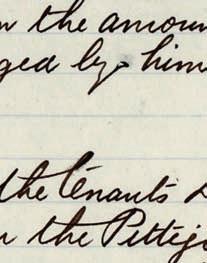 the amoun
ged by him
the tenants
the Pettig